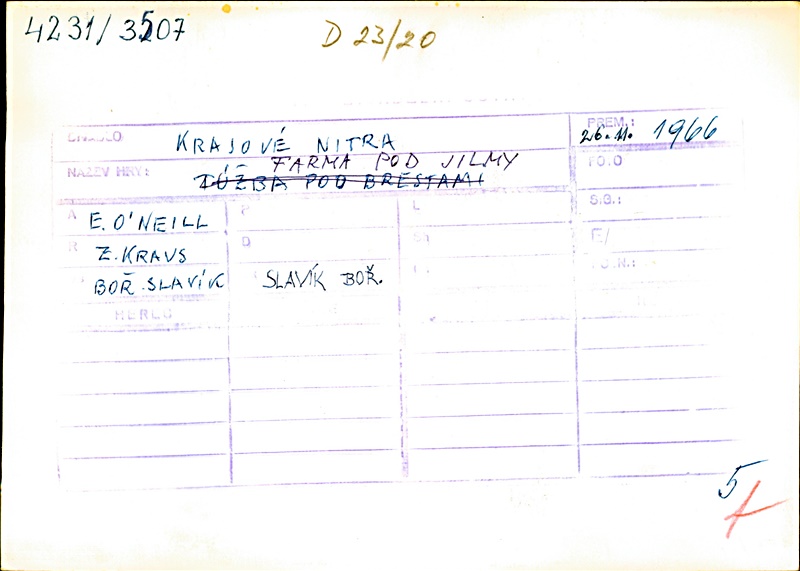 4231/3507
D 23/20
DIVADLO KRAJOVÉ NITRA
PREM.: 26.11. 1966
NÁZEV HRY: FARMA POD JILMY
TÚŽBA POD BRESTAMI
FO.O
A E. O'NEILL
L
S.B.:
R Z. KRAUS
D
E/
BOŘ. SLAVÍK
SLAVÍK BOŘ.
HERCO
5